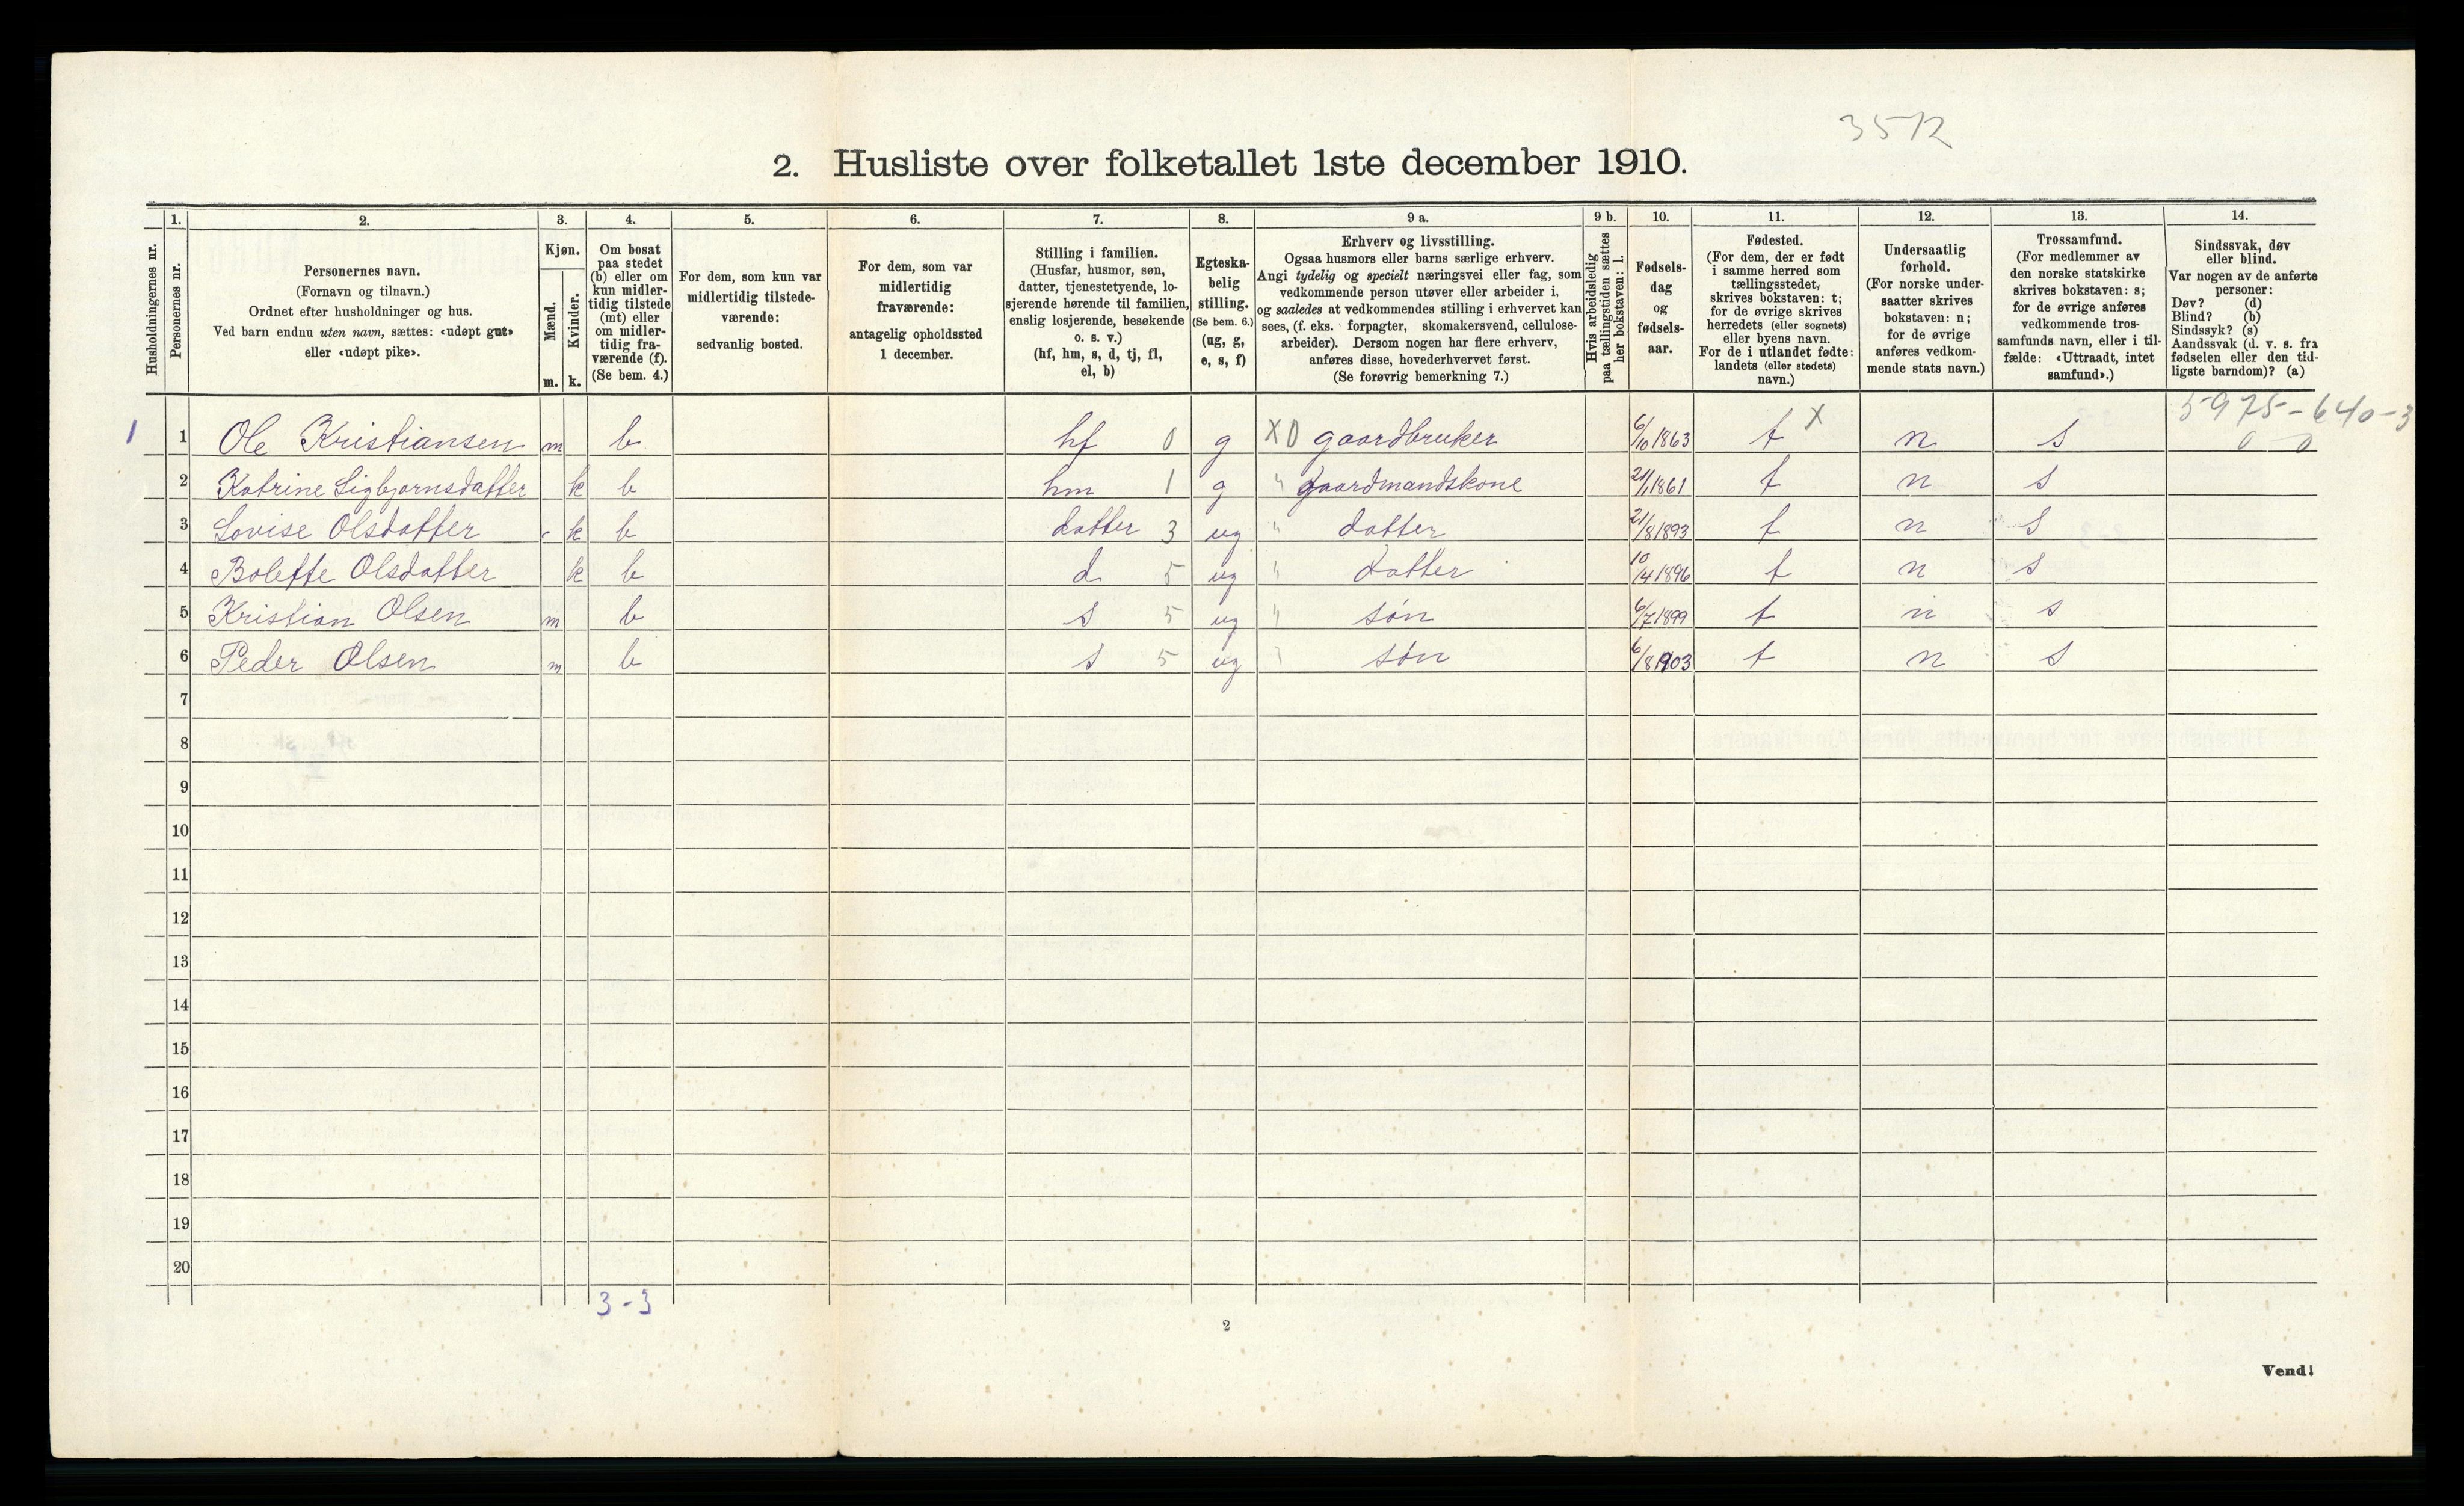 3512
2. Husliste over folketallet 1ste december 1910.
Husholdningernes nr.
1.
Personernes nr.
2.
Personernes navn.
(Fornavn og tilnavn.)
Ordnet efter husholdninger og hus.
Ved barn endnu uten navn, sættes: «udøpt gut»
eller «udøpt pike».
3.
Kjøn.
Mænd.
Kvinder.
m. k.
4.
Om bosat
paa stedet
(b) eller om
kun midler-
tidig tilstede
(mt) eller
om midler-
tidig fra-
værende (f).
(Se bem. 4.)
5.
For dem, som kun var
midlertidig tilstede-
værende:
sedvanlig bosted.
6.
For dem, som var
midlertidig
fraværende:
antagelig opholdssted
1 december.
7.
Stilling i familien.
(Husfar, husmor, søn,
datter, tjenestetyende, lo-
sjerende hørende til familien,
enslig losjerende, besøkende
o. s. v.)
(hf, hm, s, d, tj, fl,
el, b)
8.
Egteska-
belig
stilling.
(Se bem. 6.)
(ug, g,
e, s, f)
9 a.
Erhverv og livsstilling.
Ogsaa husmors eller barns særlige erhverv.
Angi tydelig og specielt næringsvei eller fag, som
vedkommende person utøver eller arbeider i,
og saaledes at vedkommendes stilling i erhvervet kan
sees, (f. eks. forpagter, skomakersvend, cellulose-
arbeider). Dersom nogen har flere erhverv,
anføres disse, hovederhvervet først.
(Se forøvrig bemerkning 7.)
9 b.
Hvis arbeidsledig
paa tællingstiden sættes
her bokstaven: l.
10.
Fødsels-
dag
og
fødsels-
aar.
11.
Fødested.
(For dem, der er født
i samme herred som
tællingsstedet,
skrives bokstaven: t;
for de øvrige skrives
herredets (eller sognets)
eller byens navn.
For de i utlandet fødte:
landets (eller stedets)
navn.)
12.
Undersaatlig
forhold.
(For norske under-
saatter skrives
bokstaven: n;
for de øvrige
anføres vedkom-
mende stats navn.)
13.
Trossamfund.
(For medlemmer av
den norske statskirke
skrives bokstaven: s;
for de øvrige anføres
vedkommende tros-
samfunds navn, eller i til-
fælde: «Uttraadt, intet
samfund».)
14.
Sindssvak, døv
eller blind.
Var nogen av de anførte
personer:
Døv? (d)
Blind? (b)
Sindssyk? (s)
Aandssvak (d. v. s. fra
fødselen eller den tid-
ligste barndom)? (a)
5975-640-3
1 1 Ole Kristiansen m b hf 0 g X 0 gaardbruker 6/10 1863 t X n s 0 0
2 Katrine Sigbjørnsdatter k b hm 1 g " gaardmandskone 21/1 1861 t n s
3 Lovise Olsdatter k b datter 3 ug " datter 21/8 1893 t n s
4 Bolette Olsdatter k b d 5 ug " datter 10/4 1896 t n s
5 Kristian Olsen m b s 5 ug " søn 6/7 1899 t n s
6 Peder Olsen m b s 5 ug " søn 6/8 1903 t n s
7
8
9
10
11
12
13
14
15
16
17
18
19
20
3-3
2
Vend!